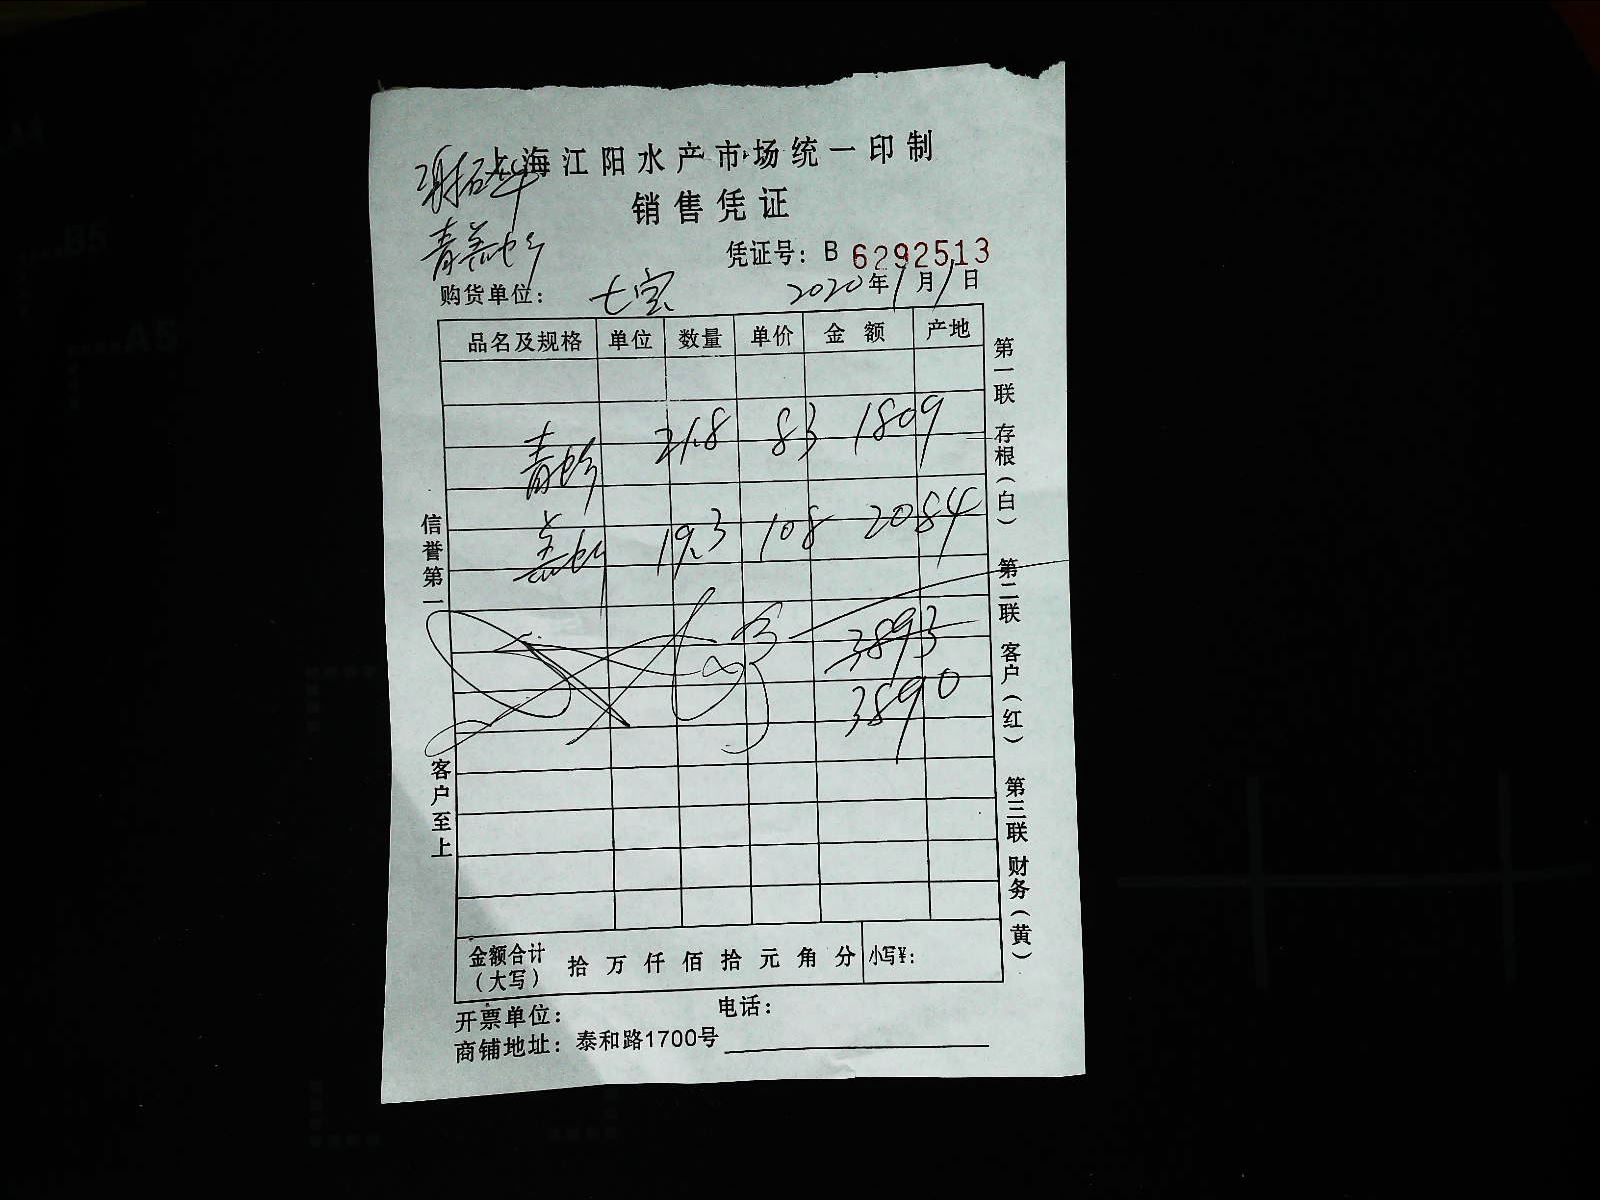 上海江阳水产市场统一印制
销售凭证
凭证号：B 6292513
购货单位： 七宝 2020年1月1日
品名及规格 单位 数量 单价 金额 产地
青 21.8 83 1809
19.3 108 2084
3893
3890
信誉第一
客户至上
第一联 存根（白） 第二联 客户（红） 第三联 财务（黄）
金额合计（大写） 拾 万 仟 佰 拾 元 角 分 小写¥：
开票单位： 电话：
商铺地址：泰和路1700号